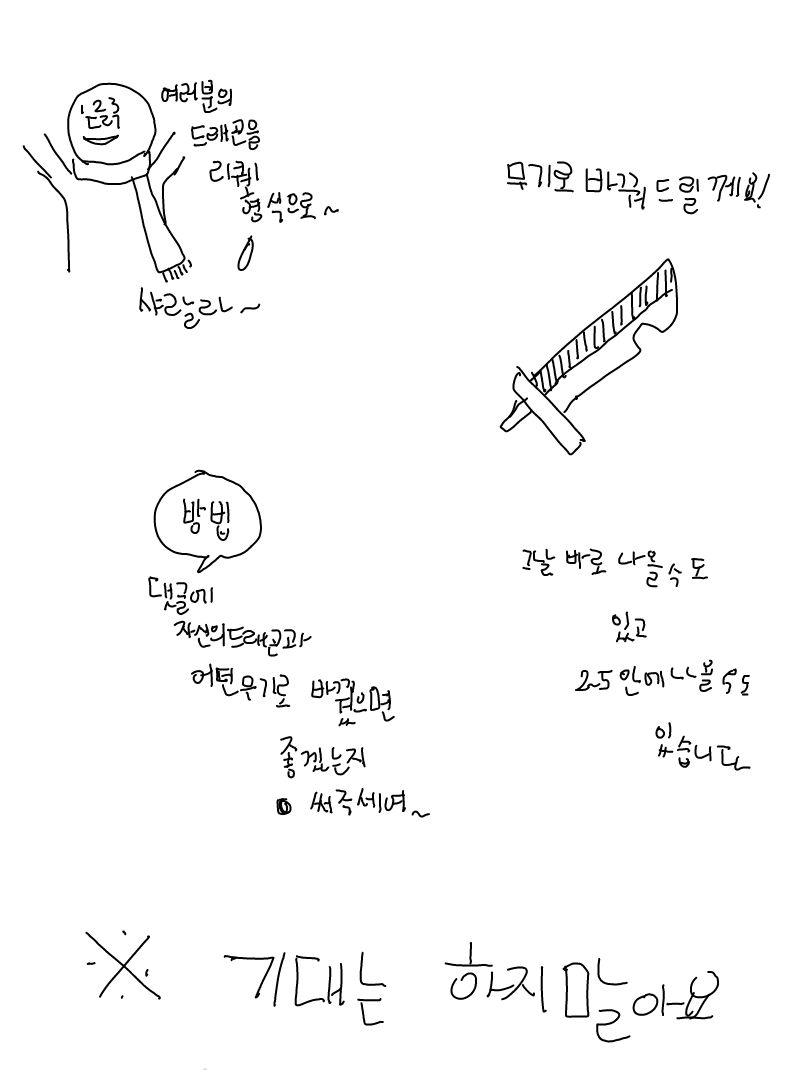 닭
여러분의
드래곤을
리퀘
형식으로~
샤라날라~
무기로 바꿔 드릴께요!
방법
댓글에
자신의드래곤과
어떤무기로 바꿨으면
좋겠는지
써주세여~
그날 바로 나올수도
있고
25안에 나올수도
있습니다
※ 기대는 하지말아요